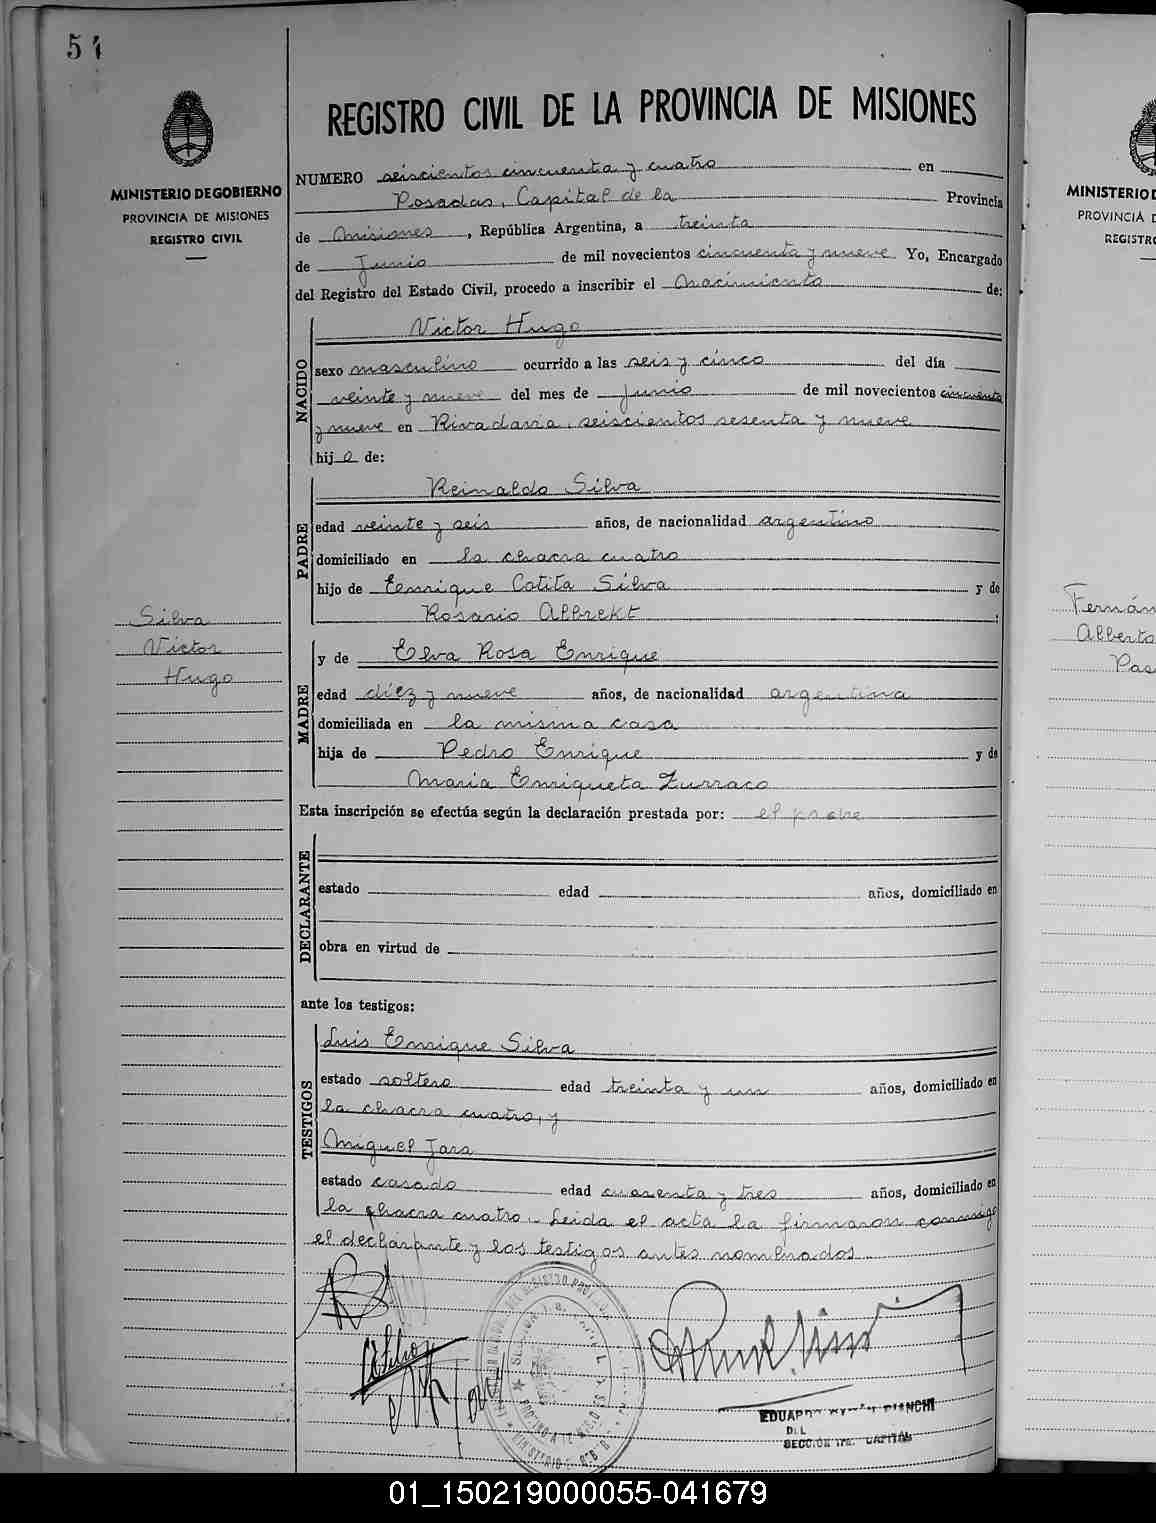 54
MINISTERIO DE GOBIERNO
PROVINCIA DE MISIONES
REGISTRO CIVIL
REGISTRO CIVIL DE LA PROVINCIA DE MISIONES
NUMERO seiscientos cincuenta y cuatro en
Posadas, Capital de la Provincia
de Misiones, República Argentina, a treinta
de Junio de mil novecientos cincuenta y nueve Yo, Encargado
del Registro del Estado Civil, procedo a inscribir el Nacimiento de:
NACIDO
Victor Hugo
sexo masculino ocurrido a las seis y cinco del día
veinte y nueve del mes de Junio de mil novecientos cincuenta
y nueve en Rivadavia, seiscientos sesenta y nueve
hijo de:
PADRE
Reinaldo Silva
edad veinte y seis años, de nacionalidad argentino
domiciliado en la chacra cuatro
hijo de Enrique Cotita Silva y de
Rosario Albrekt
Silva
Victor
Hugo
MADRE
y de Elva Rosa Enrique
edad diez y nueve años, de nacionalidad argentina
domiciliada en la misma casa
hija de Pedro Enrique y de
Maria Enriqueta Zurraco
Esta inscripción se efectúa según la declaración prestada por: el padre
DECLARANTE
estado edad años, domiciliado en
obra en virtud de
ante los testigos:
TESTIGOS
Luis Enrique Silva
estado soltero edad treinta y un años, domiciliado en
la chacra cuatro, y
Miguel Jara
estado casado edad cuarenta y tres años, domiciliado en
la chacra cuatro. Leida el acta la firmaron conmigo
el declarante y los testigos antes nombrados
EDUARDO BIANCHI
DEL
SECCIÓN CAPITAL
MINISTERIO D
PROVINCIA D
REGISTR
Fernán
Alberto
Pas
01_150219000055-041679